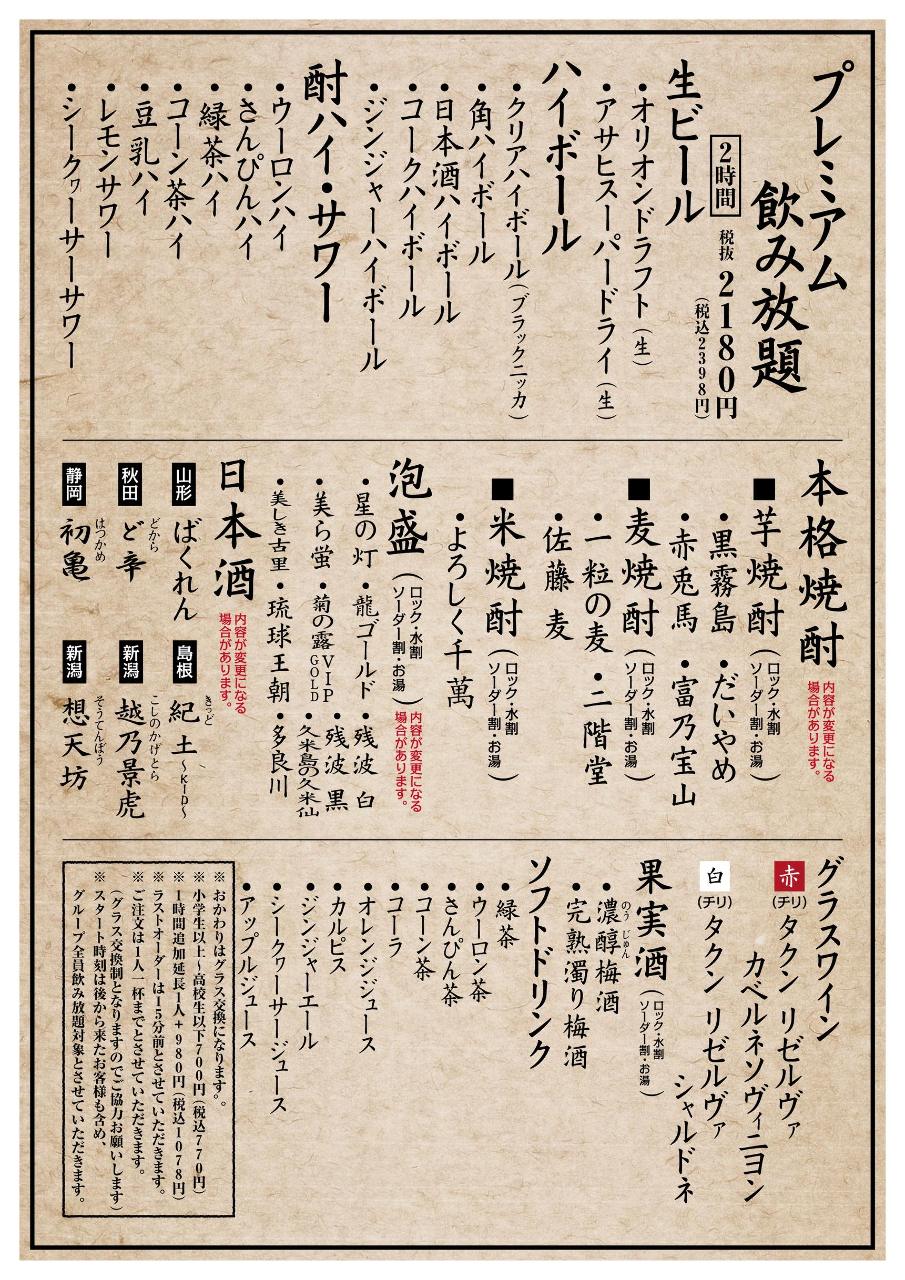 プレミアム
飲み放題
2時間 税抜 2180円
(税込2398円)
生ビール
・オリオンドラフト(生)
・アサヒスーパードライ(生)
ハイボール
・クリアハイボール(ブラックニッカ)
・角ハイボール
・日本酒ハイボール
・コークハイボール
・ジンジャーハイボール
酎ハイ・サワー
・ウーロンハイ
・さんぴんハイ
・緑茶ハイ
・コーン茶ハイ
・豆乳ハイ
・レモンサワー
・シークヮーサーサワー
本格焼酎
内容が変更になる
場合があります。
■芋焼酎(ロック・水割
ソーダー割・お湯)
・黒霧島 ・だいやめ
・赤兎馬 ・富乃宝山
■麦焼酎(ロック・水割
ソーダー割・お湯)
・一粒の麦 ・二階堂
・佐藤 麦
■米焼酎(ロック・水割
ソーダー割・お湯)
・よろしく千萬
泡盛(ロック・水割
ソーダー割・お湯)
内容が変更になる
場合があります。
・星の灯 ・龍ゴールド ・残波 白
・美ら蛍 ・菊の露VIP GOLD ・残波 黒
・久米島の久米仙
・美しき古里 ・琉球王朝 ・多良川
日本酒
内容が変更になる
場合があります。
山形 ばくれん
島根 紀土~KID~
きっど
秋田 ど辛
どから
新潟 越乃景虎
こしのかげとら
静岡 初亀
はつかめ
新潟 想天坊
そうてんぼう
グラスワイン
赤(チリ) タクン リゼルヴァ
カベルネソヴィニヨン
白(チリ) タクン リゼルヴァ
シャルドネ
果実酒(ロック・水割
ソーダー割・お湯)
・濃醇梅酒
のうじゅん
・完熟濁り梅酒
ソフトドリンク
・緑茶
・ウーロン茶
・さんぴん茶
・コーン茶
・コーラ
・オレンジジュース
・カルピス
・ジンジャーエール
・シークヮーサージュース
・アップルジュース
※おかわりはグラス交換になります。。
※小学生以上~高校生以下700円(税込770円)
※1時間追加延長1人+980円(税込1078円)
※ラストオーダーは15分前とさせていただきます。
※ご注文は1人一杯までとさせていただきます。
(グラス交換制となりますのでご協力お願いします)
※スタート時刻は後から来たお客様も含め、
グループ全員飲み放題対象とさせていただきます。